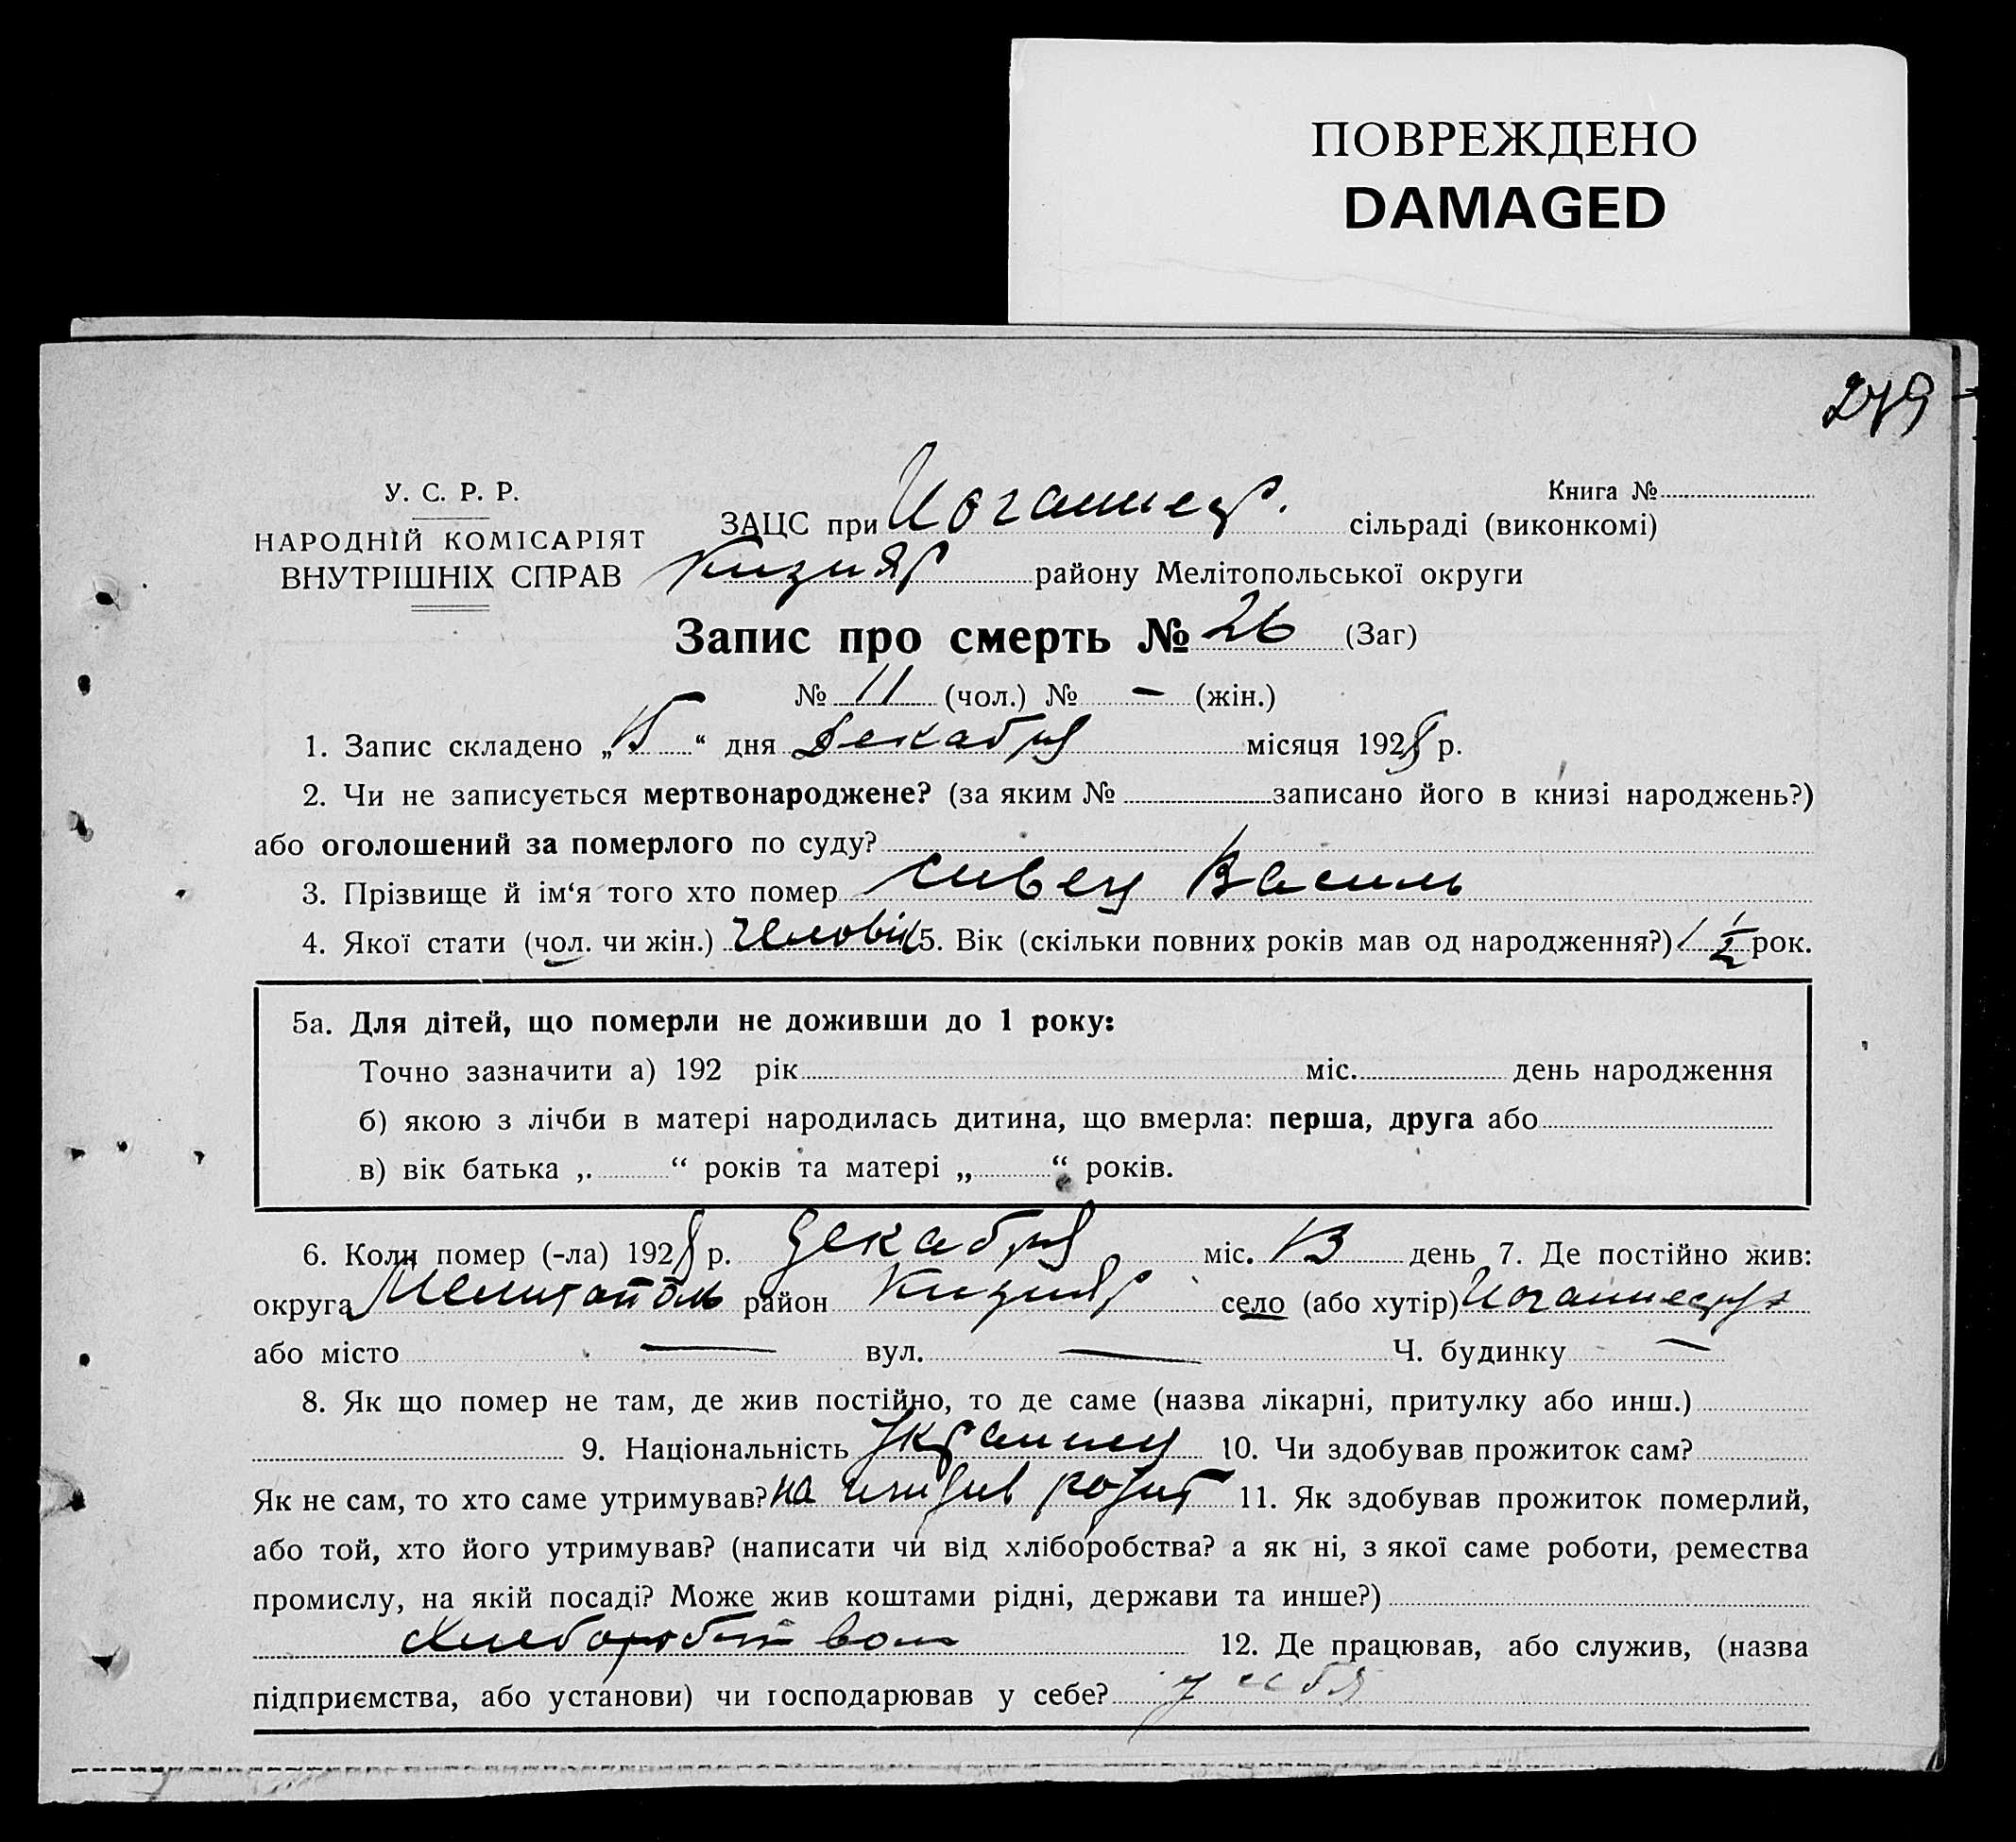 ПОВРЕЖДЕНО
DAMAGED
279
У. С. Р. Р.
НАРОДНІЙ КОМІСАРІЯТ
ВНУТРІШНІХ СПРАВ
Книга №
ЗАЦС при Иоганнеср. сільраді (виконкомі)
Кизияр району Мелітопольської округи
Запис про смерть № 26 (Заг)
№ 11 (чол.) № — (жін.)
1. Запис складено „15“ дня Декабря місяця 1928 р.
2. Чи не записується мертвонароджене? (за яким № записано його в книзі народжень?)
або оголошений за померлого по суду?
3. Прізвище й ім‘я того хто помер Сивец Василь
4. Якої стати (чол. чи жін.) Человік 5. Вік (скільки повних років мав од народження?) 1 1/2 рок.
5а. Для дітей, що померли не доживши до 1 року:
Точно зазначити а) 192 рік міс. день народження
б) якою з лічби в матері народилась дитина, що вмерла: перша, друга або
в) вік батька „ “ років та матері „ “ років.
6. Коли помер (-ла) 1928 р. декабря міс. 13 день 7. Де постійно жив:
округа Мелитополь район Кизияр село (або хутір)
або місто — вул. — Ч. будинку —
8. Як що помер не там, де жив постійно, то де саме (назва лікарні, притулку або инш.)
9. Національність Украинец 10. Чи здобував прожиток сам?
Як не сам, то хто саме утримував? на 11. Як здобував прожиток померлий,
або той, хто його утримував? (написати чи від хліборобства? а як ні, з якої саме роботи, ремества
промислу, на якій посаді? Може жив коштами рідні, держави та инше?)
12. Де працював, або служив, (назва
підприємства, або установи) чи господарював у себе? у себя